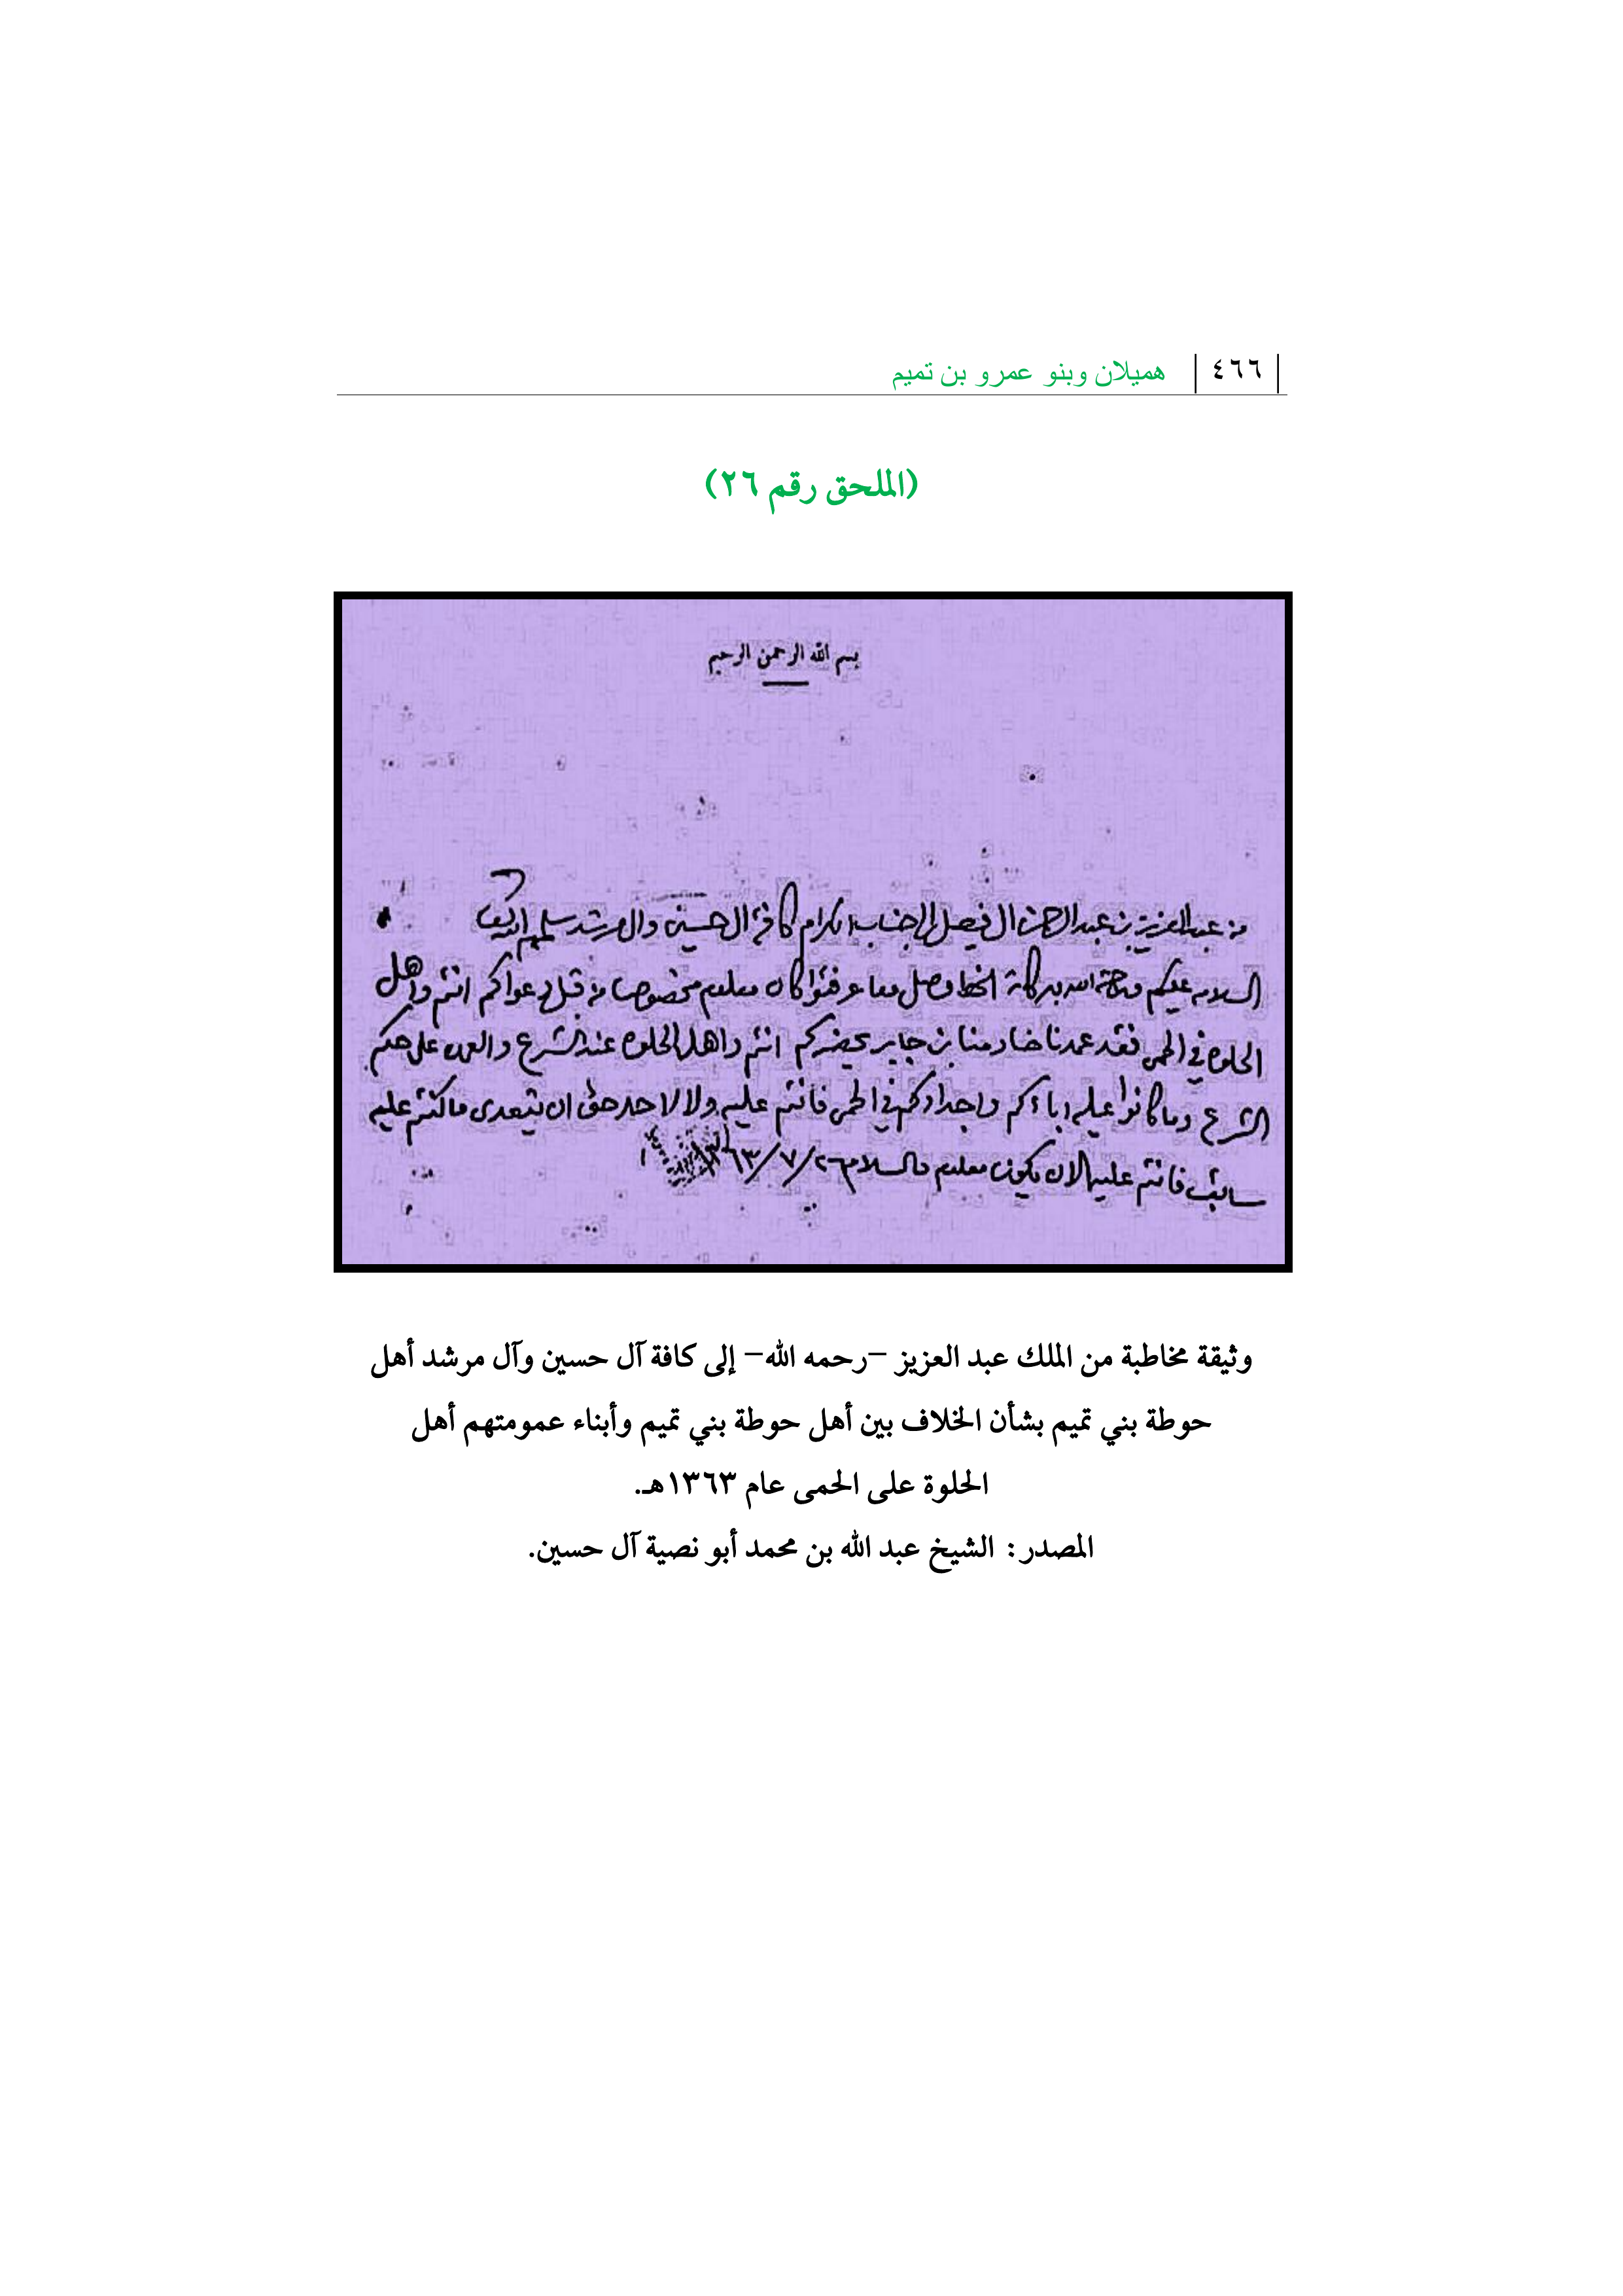 ٤٦٦ هميلان وبنو عمرو بن تميم
(الملحق رقم ٢٦)
بسم الله الرحمن الرحيم
من عبد العزيز بن عبد الرحمن ال فيصل إلى جناب الكرام كافة ال حسين وال مرشد سلمهم الله تعالى
السلام عليكم ورحمة الله وبركاته الخط وصل وما عرفتوا كان معلوم مخصوصا من قبل دعواكم انتم واهل
الحلوه في الحمى فقد عمدنا خادمنا بن جابر يحضركم انتم واهل الحلوه عند الشرع والعمل على حكم
الشرع وما كانوا عليه اباءكم واجدادكم في الحمى فانتم عليه ولا لاحد حق ان يتعدى ما كنتم عليه
سابق فانتم عليه الان يكون معلوم والسلام ٢٦/٧/١٣٦٣
وثيقة مخاطبة من الملك عبد العزيز –رحمه الله– إلى كافة آل حسين وآل مرشد أهل
حوطة بني تميم بشأن الخلاف بين أهل حوطة بني تميم وأبناء عمومتهم أهل
الحلوة على الحمى عام ١٣٦٣هـ.
المصدر: الشيخ عبد الله بن محمد أبو نصية آل حسين.